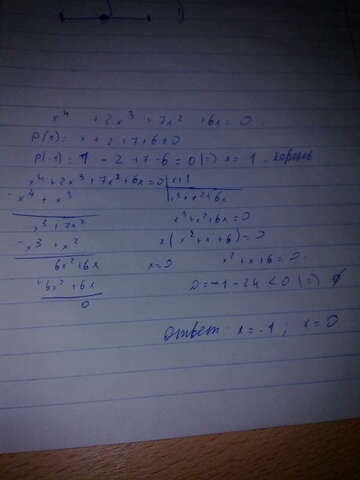 x⁴ + 2x³ + 7x² + 6x = 0
P(1) = 1 + 2 + 7 + 6 ≠ 0
P(-1) = 1 - 2 + 7 - 6 = 0 (=) x = -1 корень
x⁴ + 2x³ + 7x² + 6x = 0 | x+1
- x⁴ + x³
x³ + x² + 6x
x³ + 7x²
x³ + x² + 6x = 0
- x³ + x²
x(x² + x + 6) = 0
6x² + 6x
x = 0
x² + x + 6 = 0
- 6x² + 6x
D = 1 - 24 < 0 (=) ∅
0
ответ: x = -1; x = 0